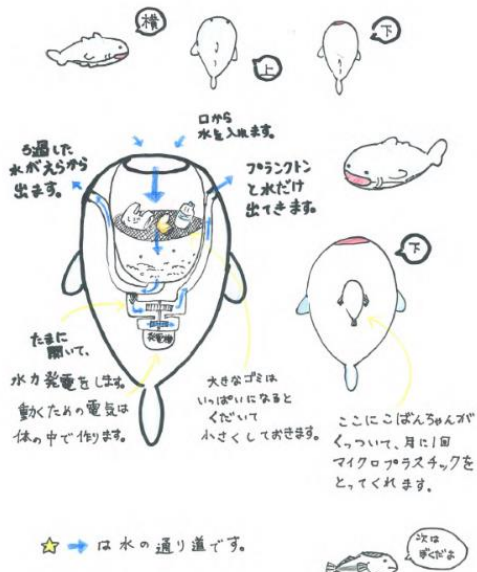 横
上
下
口から
水を入れます。
ろ過した
水がえらから
出ます。
プランクトン
と水だけ
出てきます。
下
発電機
たまに
開いて、
水力発電をします。
動くための電気は
体の中で作ります。
大きなゴミは
いっぱいになると
くだいて
小さくしておきます。
ここにこばんちゃんが
くっついて、月に1回
マイクロプラスチックを
とってくれます。
☆ → は水の通り道です。
次は
ぼくだよ